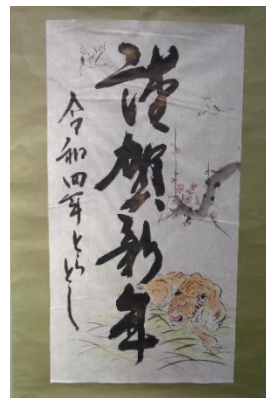 謹賀新年
令和四年とらどし